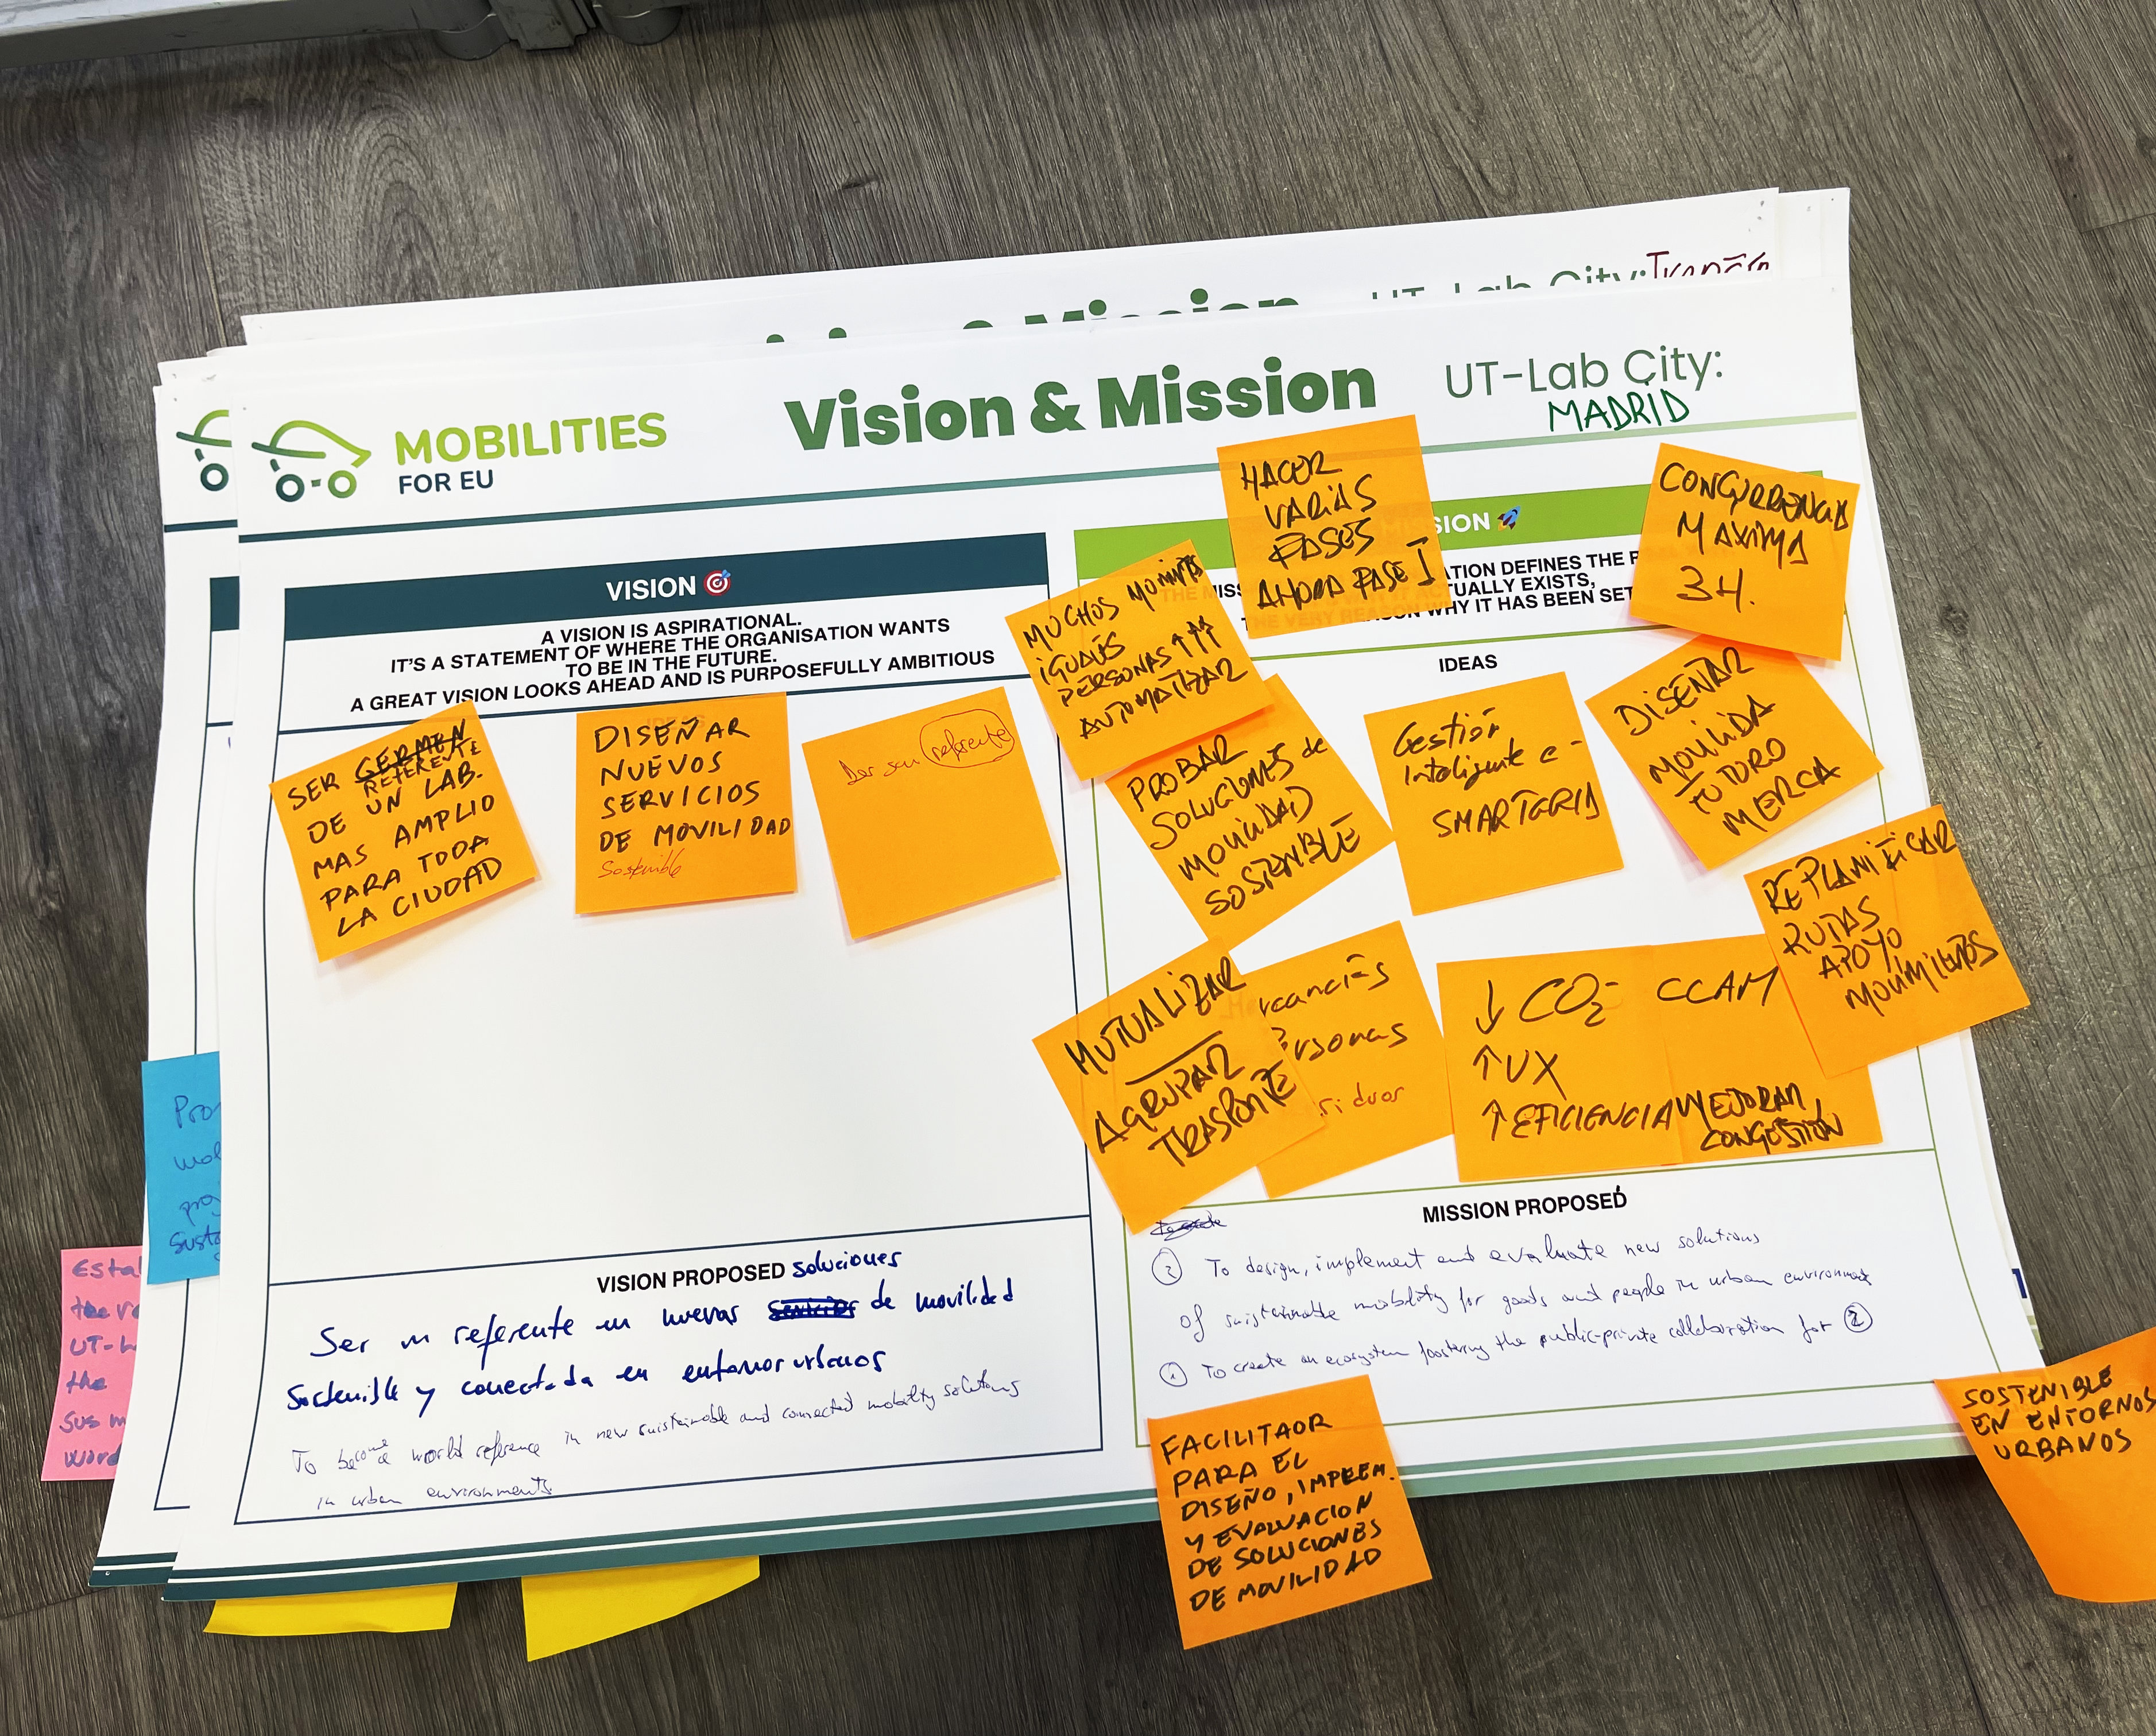 Vision & Mission
UT-Lab City:
MOBILITIES
FOR EU
Vision & Mission
UT-Lab City:
MADRID
VISION
A VISION IS ASPIRATIONAL.
IT'S A STATEMENT OF WHERE THE ORGANISATION WANTS
TO BE IN THE FUTURE.
A GREAT VISION LOOKS AHEAD AND IS PURPOSEFULLY AMBITIOUS
SER GERMEN
REFERENTE
DE UN LAB.
MAS AMPLIO
PARA TODA
LA CIUDAD
DISEÑAR
NUEVOS
SERVICIOS
DE MOVILIDAD
Sostenible
Ser un referente
VISION PROPOSED
soluciones
Ser un referente en nuevas servicios de movilidad
Sostenible y conectada en entornos urbanos
To become a world reference in new sustainable and connected mobility solutions
in urban environments
SION
THE MISS
ATION DEFINES THE P
TUALLY EXISTS,
THE VERY REASON WHY IT HAS BEEN SET
IDEAS
HACER
VARIAS
FASES
AHORA FASE I
CONGURRENCIA
MAXIMA
3H.
MUCHOS
IGUALES
PERSONAS ↑↑↑
AUTOMATIZAR
PROBAR
SOLUCIONES de
MOVILIDAD
SOSTENIBLE
Gestión
Inteligente e-
DISEÑAR
MOVILIDA
FUTURO
MERCA
REPLANIFICAR
RUTAS
APOYO
MOVIMIENTOS
MUTUALIZAR
AGRUPAR
TRASPORTE
rcancías
ersonas
siduos
↓ CO2
↑ UX
↑ EFICIENCIA
CCAM
MEJORAR
CONGESTIÓN
MISSION PROPOSED
② To design, implement and evaluate new solutions
of sustainable mobility for goods and people in urban environment
① To create an ecosystem foostering the public-private collaboration for ②
FACILITAOR
PARA EL
DISEÑO, IMPLEM.
Y EVALUACION
DE SOLUCIONES
DE MOVILIDAD
SOSTENIBLE
EN ENTORNOS
URBANOS
Pro
mob
proj
Susta
Esta
the
UT-L
the
Sus m
word